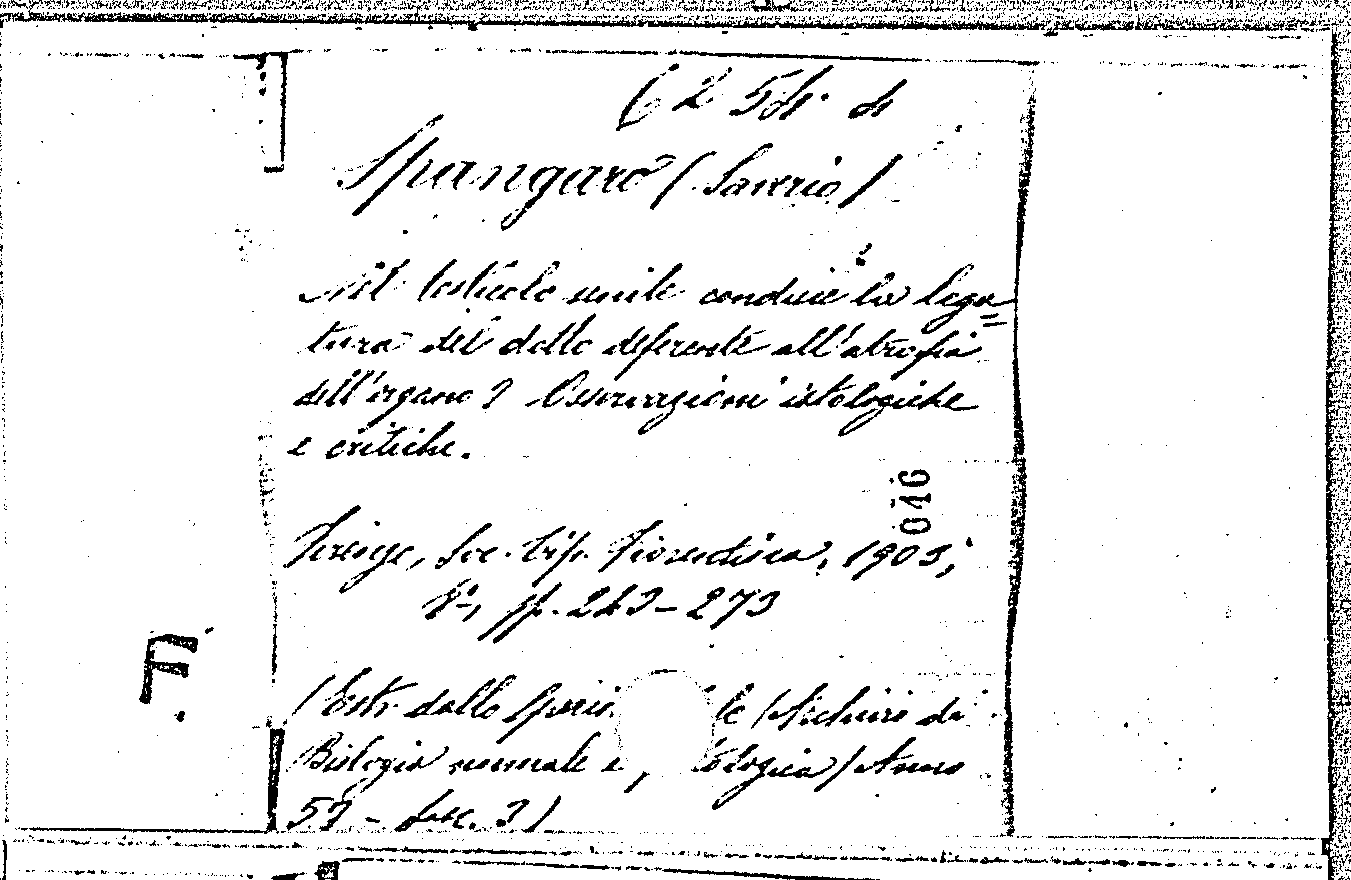 Spangaro (Saverio)
Nel testicolo umile conduce la lega=
tura del dotto deferente all'atrofia
dell'organo? Osservazioni istologiche
e critiche.
046
Firenze, Soc. tip. Fiorentina, 1903;
8º, pp. 243-273
(Estr. dallo Speri le (Archivio di
Biologia normale e ologica) Anno
57 - fasc. 3)
F.